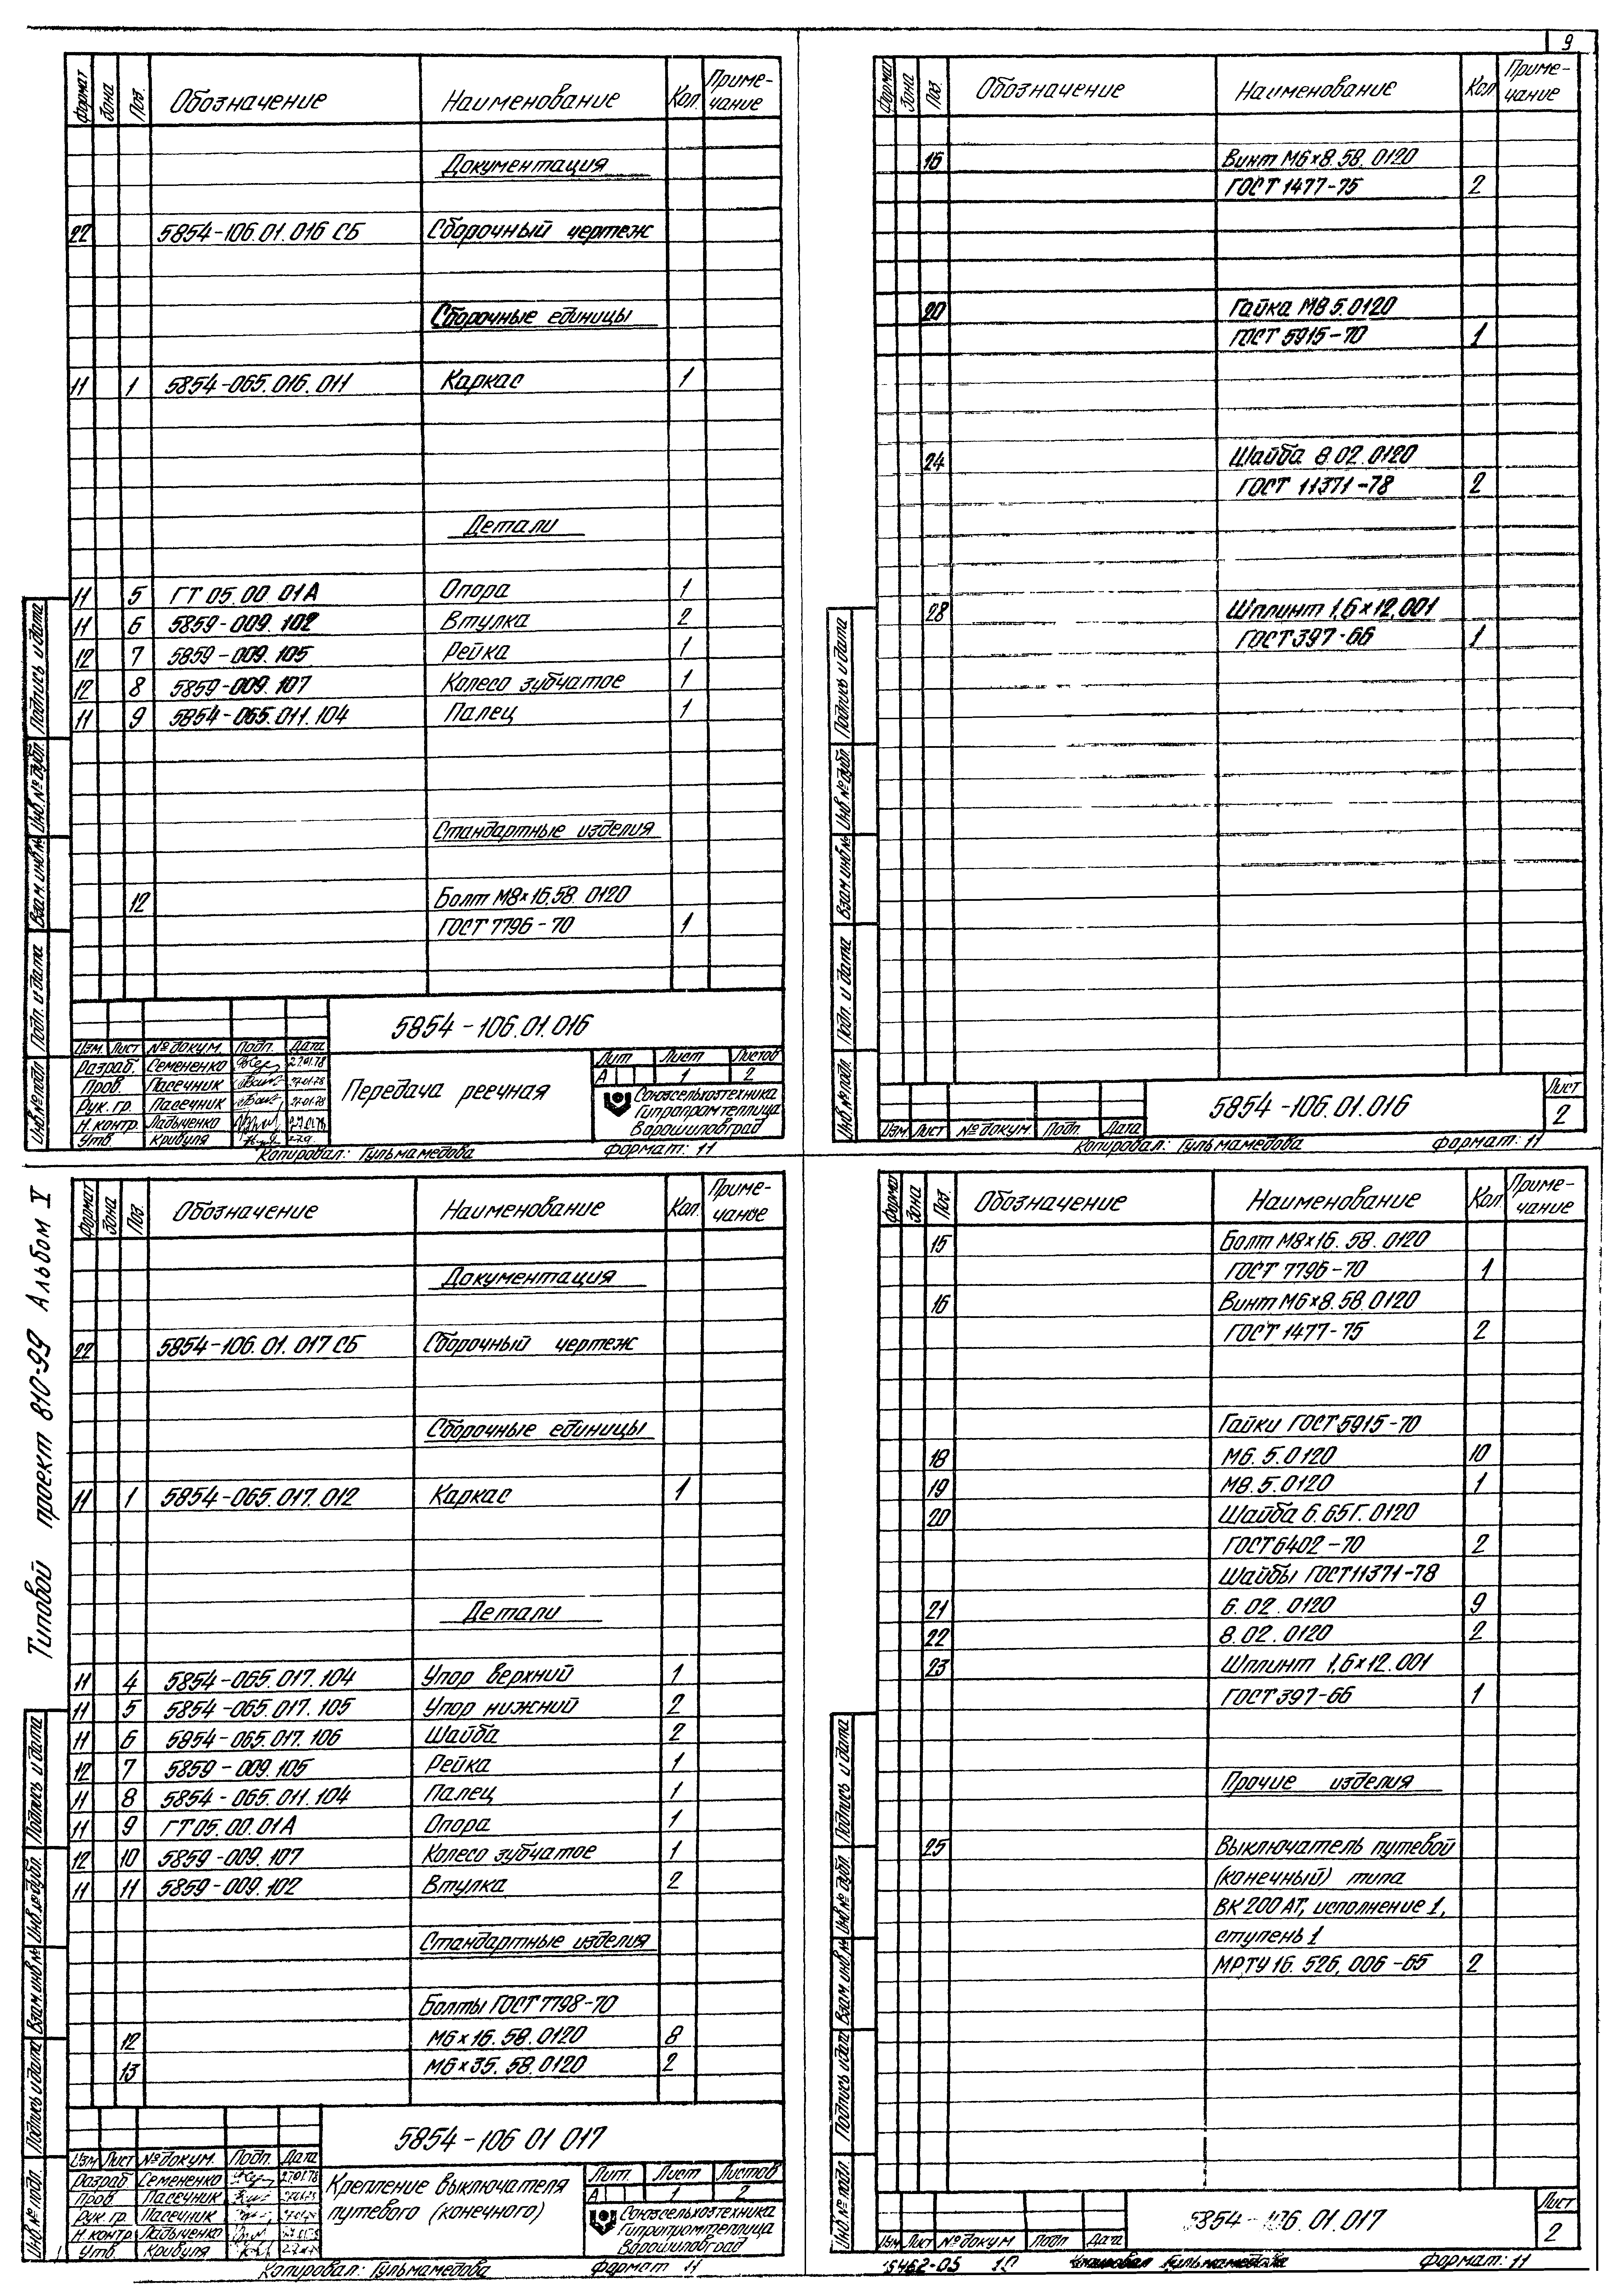 9
Формат Зона Поз. Обозначение Наименование Кол. Приме-чание
Документация
22 5854-106.01.016 СБ Сборочный чертеж
Сборочные единицы
11 1 5854-065.016.011 Каркас 1
Детали
11 5 ГТ 05.00.01А Опора 1
11 6 5859-009.102 Втулка 2
12 7 5859-009.105 Рейка 1
12 8 5859-009.107 Колесо зубчатое 1
11 9 5854-065.011.104 Палец 1
Стандартные изделия
12 Болт М8×16.58.0120
ГОСТ 7796-70 1
5854-106.01.016
Изм. Лист № докум. Подп. Дата
Разраб. Семененко 27.01.78
Пров. Пасечник 27.01.78
Рук. гр. Пасечник 27.01.78
Н. контр. Ладыченко 27.01.78
Утв. Кривуля
Передача реечная
Лит. Лист Листов
А 1 2
Союзсельхозтехника
Гипропромтеплица
Ворошиловград
Копировал: Гульмамедова Формат: 11
Подпись и дата
Инв. № дубл.
Взам. инв. №
Подп. и дата
Инв. № подл.
Формат Зона Поз. Обозначение Наименование Кол Приме-чание
16 Винт М6×8.58.0120
ГОСТ 1477-75 2
20 Гайка М8 5.0120
ГОСТ 5915-70 1
24 Шайба 8.02.0120
ГОСТ 11371-78 2
28 Шплинт 1,6×12,001
ГОСТ 397-66 1
Подпись и дата
Инв. № дубл.
Взам. инв. №
Подп. и дата
Инв. № подл.
Изм Лист № докум Подп. Дата
5854-106.01.016
Лист
2
Копировал: Гульмамедова Формат: 11
Типовой проект 810-99 Альбом V
Формат Зона Поз. Обозначение Наименование Кол. Приме-чание
Документация
22 5854-106.01.017 СБ Сборочный чертеж
Сборочные единицы
11 1 5854-065.017.012 Каркас 1
Детали
11 4 5854-065.017.104 Упор верхний 1
11 5 5854-065.017.105 Упор нижний 2
11 6 5854-065.017.106 Шайба 2
12 7 5859-009.105 Рейка 1
11 8 5854-065.011.104 Палец 1
11 9 ГТ 05.00.01А Опора 1
12 10 5859-009.107 Колесо зубчатое 1
11 11 5859-009.102 Втулка 2
Стандартные изделия
Болты ГОСТ 7798-70
12 М6×16.58.0120 8
13 М6×35.58.0120 2
5854-106 01 017
Изм Лист № докум. Подп. Дата
Разраб Семененко 27.01.78
Пров. Пасечник
Рук. гр. Пасечник
Н контр Ладыченко
Утв. Кривуля
Крепление выключателя
путевого (конечного)
Лит. Лист Листов
А 1 2
Союзсельхозтехника
Гипропромтеплица
Ворошиловград
Копировал: Гульмамедова Формат 11
Подпись и дата
Инв. № дубл.
Взам инв №
Подпись и дата
Инв. № подл.
Формат Зона Поз. Обозначение Наименование Кол Приме-чание
15 Болт М8×16.58.0120
ГОСТ 7796-70 1
16 Винт М6×8.58.0120
ГОСТ 1477-75 2
Гайки ГОСТ 5915-70
18 М6.5.0120 10
19 М8.5.0120 1
20 Шайба 6.65Г.0120
ГОСТ 6402-70 2
Шайбы ГОСТ 11371-78
21 6.02.0120 9
22 8.02.0120 2
23 Шплинт 1,6×12.001
ГОСТ 397-66 1
Прочие изделия
25 Выключатель путевой
(конечный) типа
ВК 200 АТ, исполнение 1,
ступень 1
МРТУ 16. 526, 006-65 2
Подпись и дата
Инв № дубл
Взам инв №
Подпись и дата
Инв № подл
Изм. Лист № докум Подп Дата
5854-106.01.017
Лист
2
15462-05 10 Копировал Гульмамедова Формат: 11